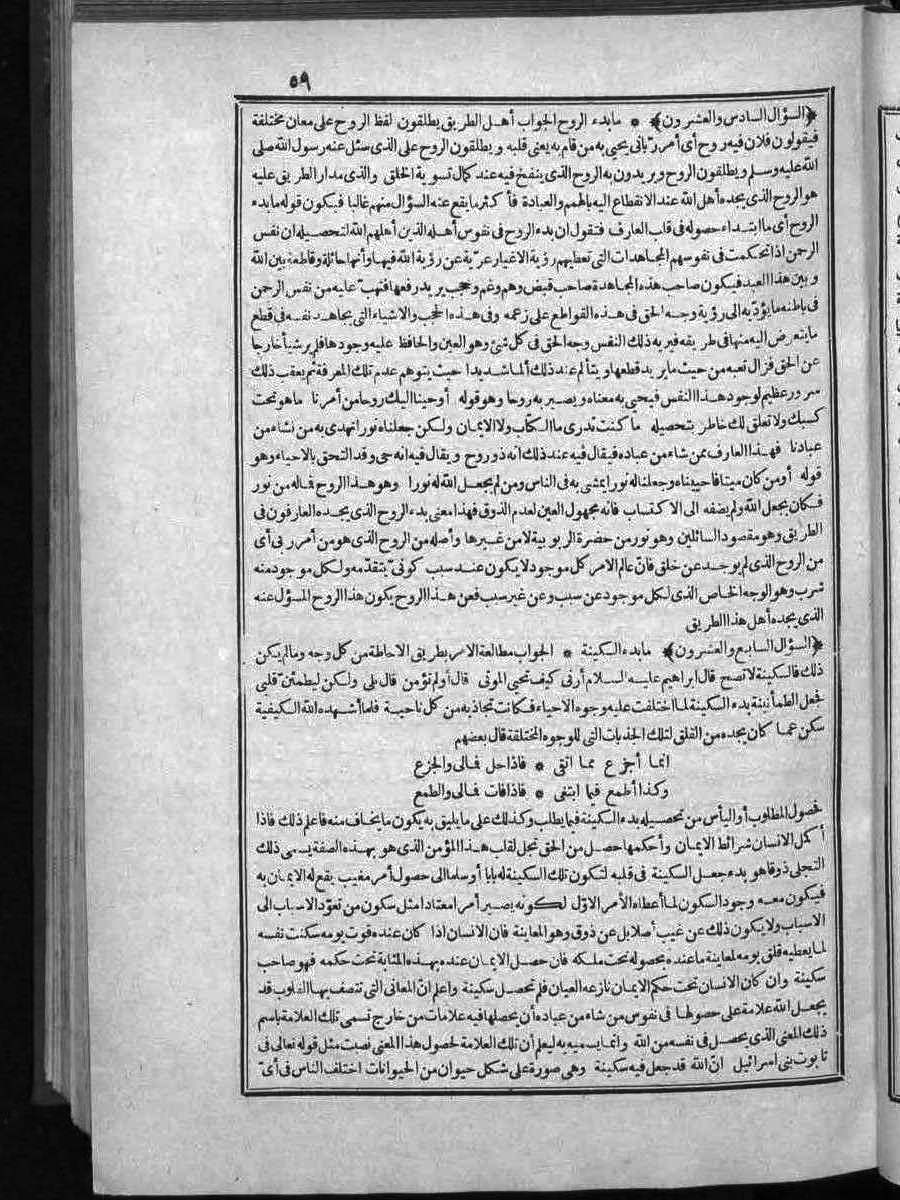 ٥٩
﴿السؤال السادس والعشرون﴾ * مابدء الروح الجواب أهل الطريق يطلقون لفظ الروح على معان مختلفة
فيقولون فلان فيه روح أى أمر ربانى يحيى به من قام به يعنى قلبه ويطلقون الروح على الذى سئل عنه رسول الله صلى
الله عليه وسلم ويطلقون الروح ويريدون به الروح الذى ينفخ فيه عند كمال تسوية الخلق والذى مدار الطريق عليه
هو الروح الذى يجده أهل الله عند الانقطاع اليه بالهمم والعبادة فأكثر ما يقع عنه السؤال منهم غالبا فيكون قوله مابدء
الروح أى ما ابتداء حصوله فى قلب العارف فنقول ان بدء الروح فى نفوس أهله الذين أهلهم الله لتحصيله ان نفس
الرحمن اذا تحكمت فى نفوسهم المجاهدات التى تعطيهم رؤية الاغيار عرية عن رؤية الله فيها وأنها حائلة وقاطعة بين الله
وبين هذا العبد فيكون صاحب هذه المجاهدة صاحب قبض وهم وغم وحجب يريد رفعها فتهب عليه من نفس الرحمن
فى باطنه ما يؤديه الى رؤية وجه الحق فى هذه القواطع على زعمه وفى هذه الحجب والاشياء التى يجاهد نفسه فى قطع
ما يتعرض اليه منها فى طريقه فيريه ذلك النفس وجه الحق فى كل شئ وهو العين والحافظ عليه وجودها فلم ير شيأ خارجا
عن الحق فزال تعبه من حيث ما يريد قطعها ويتألم عند ذلك ألما شديدا حيث يتوهم عدم تلك المعرفة ثم يعقب ذلك
سرور عظيم لوجود هذا النفس فيحيى به معناه ويصير به روحا وهو قوله أوحينا اليك روحا من أمرنا ما هو تحت
كسبك ولا تعلق لك خاطر بتحصيله ما كنت تدرى ما الكتاب ولا الايمان ولكن جعلناه نورا نهدى به من نشاء من
عبادنا فهذا العارف ممن شاء من عباده فيقال فيه عند ذلك انه ذو روح ويقال فيه انه حى وقد التحق بالاحياء وهو
قوله أو من كان ميتا فاحييناه وجعلنا له نورا يمشى به فى الناس ومن لم يجعل الله له نورا وهو هذا الروح فما له من نور
فكان يجعل الله ولم يضفه الى الاكتساب فانه مجهول العين لعدم الذوق فهذا معنى بدء الروح الذى يجده العارفون فى
الطريق وهو مقصود السائلين وهو نور من حضرة الربوبية لا من غيرها وأصله من الروح الذى هو من أمر ربى أى
من الروح الذى لم يوجد عن خلق فان عالم الامر كل موجود لا يكون عند سبب كونى يتقدمه ولكل موجود منه
شرب وهو الوجه الخاص الذى لكل موجود عن سبب وعن غير سبب فعن هذا الروح يكون هذا الروح المسؤل عنه
الذى يجده أهل هذا الطريق
﴿السؤال السابع والعشرون﴾ مابدء السكينة * الجواب مطالعة الامر بطريق الاحاطة من كل وجه وما لم يكن
ذلك فالسكينة لا تصح قال ابراهيم عليه السلام أرنى كيف تحيى الموتى قال أولم تؤمن قال بلى ولكن ليطمئن قلبى
فجعل الطمأنينة بدء السكينة لما اختلفت عليه وجوه الاحياء فكانت تجاذبه من كل ناحية فلما أشهده الله الكيفية
سكن عما كان يجده من القلق لتلك الجذبات التى للوجوه المختلفة قال بعضهم
انما أجزع مما اتقى * فاذا حل فمالى والجزع
وكذا أطمع فيما ابتغى * فاذا فات فمالى والطمع
فحصول المطلوب أو اليأس من تحصيله بدء السكينة فيما يطلب وكذلك على ما يليق به يكون ما يخاف منه فاعلم ذلك فاذا
أكمل الانسان شرائط الايمان وأحكمها حصل من الحق تجل لقلب هذا المؤمن الذى هو بهذه الصفة يسمى ذلك
التجلى ذوقا هو بدء جعل السكينة فى قلبه لتكون تلك السكينة له بابا أو سلما الى حصول أمر مغيب يقع له الايمان به
فيكون معه وجود السكون لما أعطاه الأمر الاول لكونه يصير أمرا معتادا مثل سكون من تعود الاسباب الى
الاسباب ولا يكون ذلك عن غيب أصلا بل عن ذوق وهو المعاينة فان الانسان اذا كان عنده قوت يومه سكنت نفسه
لما يعطيه قلق يومه لمعاينة ما عنده بحصوله تحت ملكه فان حصل الايمان عنده بهذه المثابة تحت حكمه فهو صاحب
سكينة وان كان الانسان تحت حكم الايمان نازعه العيان فلم تحصل سكينة واعلم ان المعانى التى تتصف بها القلوب قد
يجعل الله علامة على حصولها فى نفوس من شاء من عباده أن يحصلها فيه علامات من خارج تسمى تلك العلامة باسم
ذلك المعنى الذى يحصل فى نفسه من الله وانما يسميه به ليعلم أن تلك العلامة لحصول هذا المعنى نصبت مثل قوله تعالى فى
تابوت بنى اسرائيل ان الله قد جعل فيه سكينة وهى صورة على شكل حيوان من الحيوانات اختلف الناس فى أى